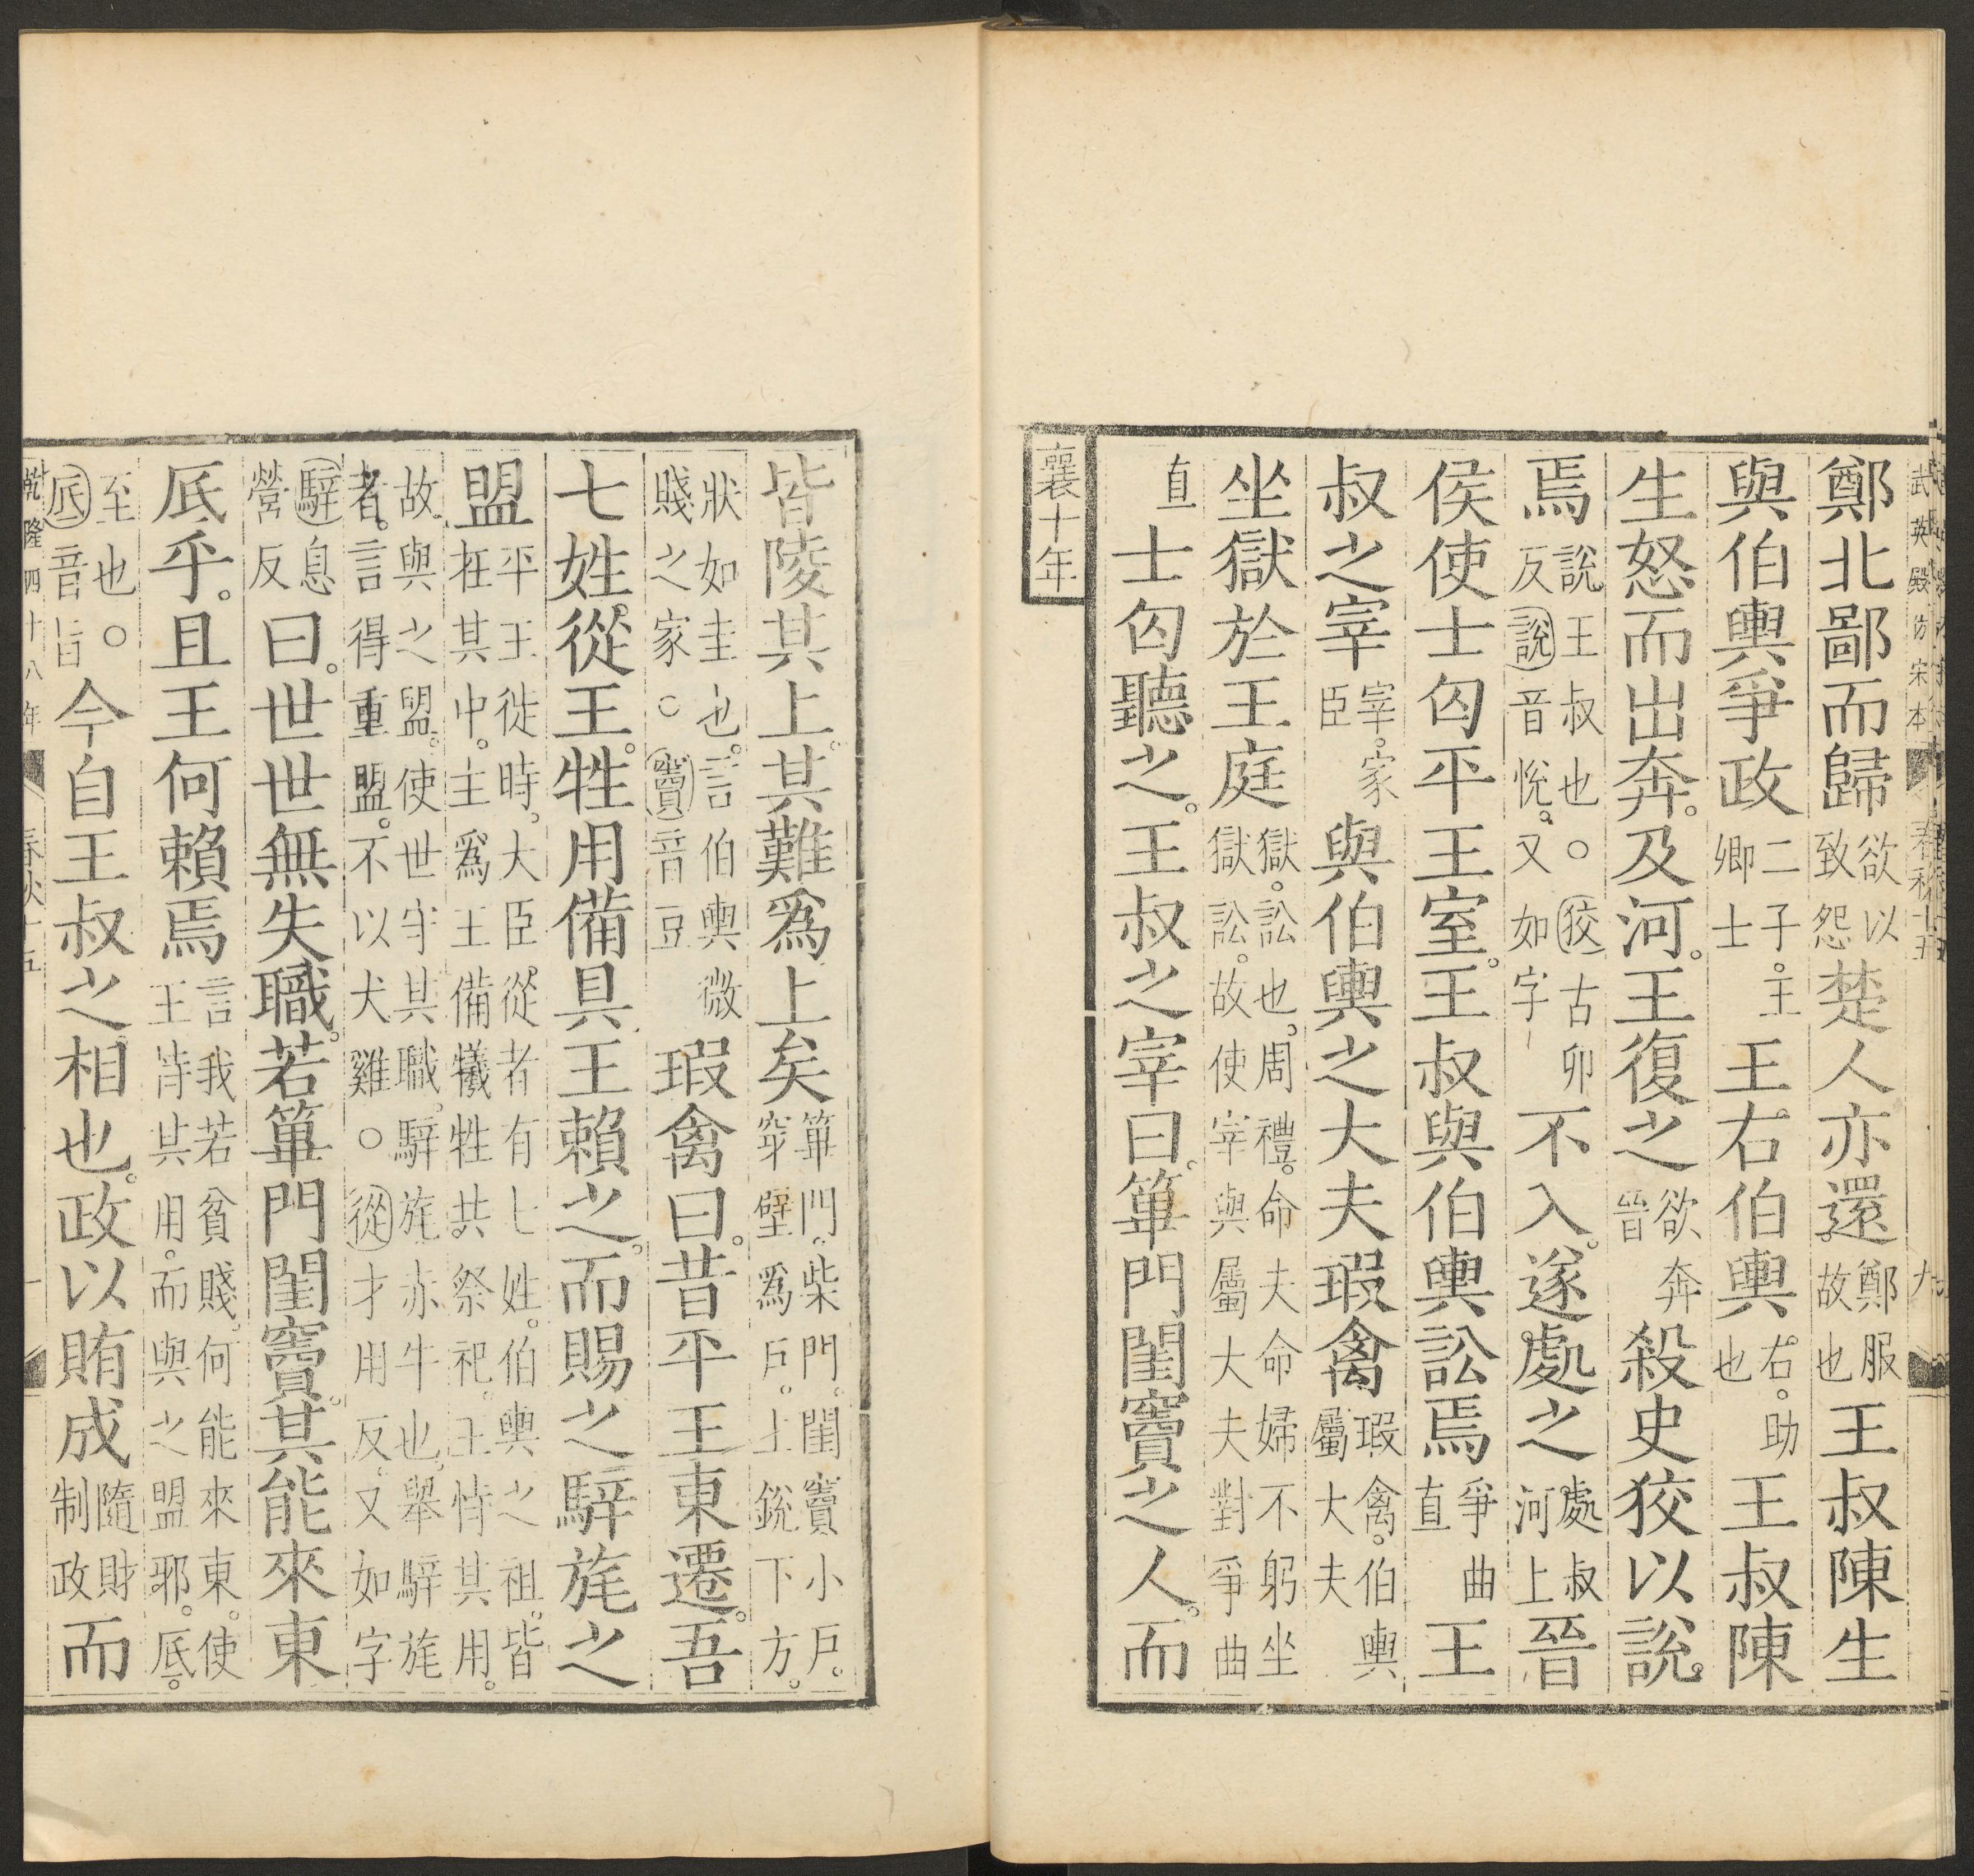 武英殿仿宋本 春秋十五 九
鄭北鄙而歸欲以致怨楚人亦還。鄭服故也王叔陳生
與伯輿爭政二子。王卿士王右伯輿右。助也王叔陳
生怒而出奔。及河。王復之欲奔晉殺史狡以說。
焉說王叔也。○狡古卯反說音悅。又如字不入。遂處之處叔河上晉
侯使士匄平王室。王叔與伯輿訟焉爭曲直王
叔之宰宰。家臣與伯輿之大夫瑕禽瑕禽。伯輿屬大夫
坐獄於王庭獄。訟也。周禮。命夫命婦不躬坐獄訟。故使宰與屬大夫對爭曲
直士匄聽之。王叔之宰曰。篳門閨竇之人。而
襄十年
皆陵其上。其難爲上矣篳門。柴門。閨竇小戶。穿壁爲戶。上銳下方。
狀如圭也。言伯輿微賤之家○竇音豆瑕禽曰。昔平王東遷。吾
七姓從王。牲用備具。王賴之。而賜之騂旄之
盟平王徙時。大臣從者有七姓。伯輿之祖。皆在其中。主爲王備犧牲共祭祀。王恃其用。
故與之盟。使世守其職。騂旄赤牛也。舉騂旄者。言得重盟。不以犬雞○從才用反。又如字
騂息營反曰。世世無失職。若篳門閨竇。其能來東
厎乎。且王何賴焉言我若貧賤。何能來東。使王恃其用。而與之盟耶。厎。
至也。○厎音旨今自王叔之相也。政以賄成隨財制政而
乾隆四十八年 春秋十五